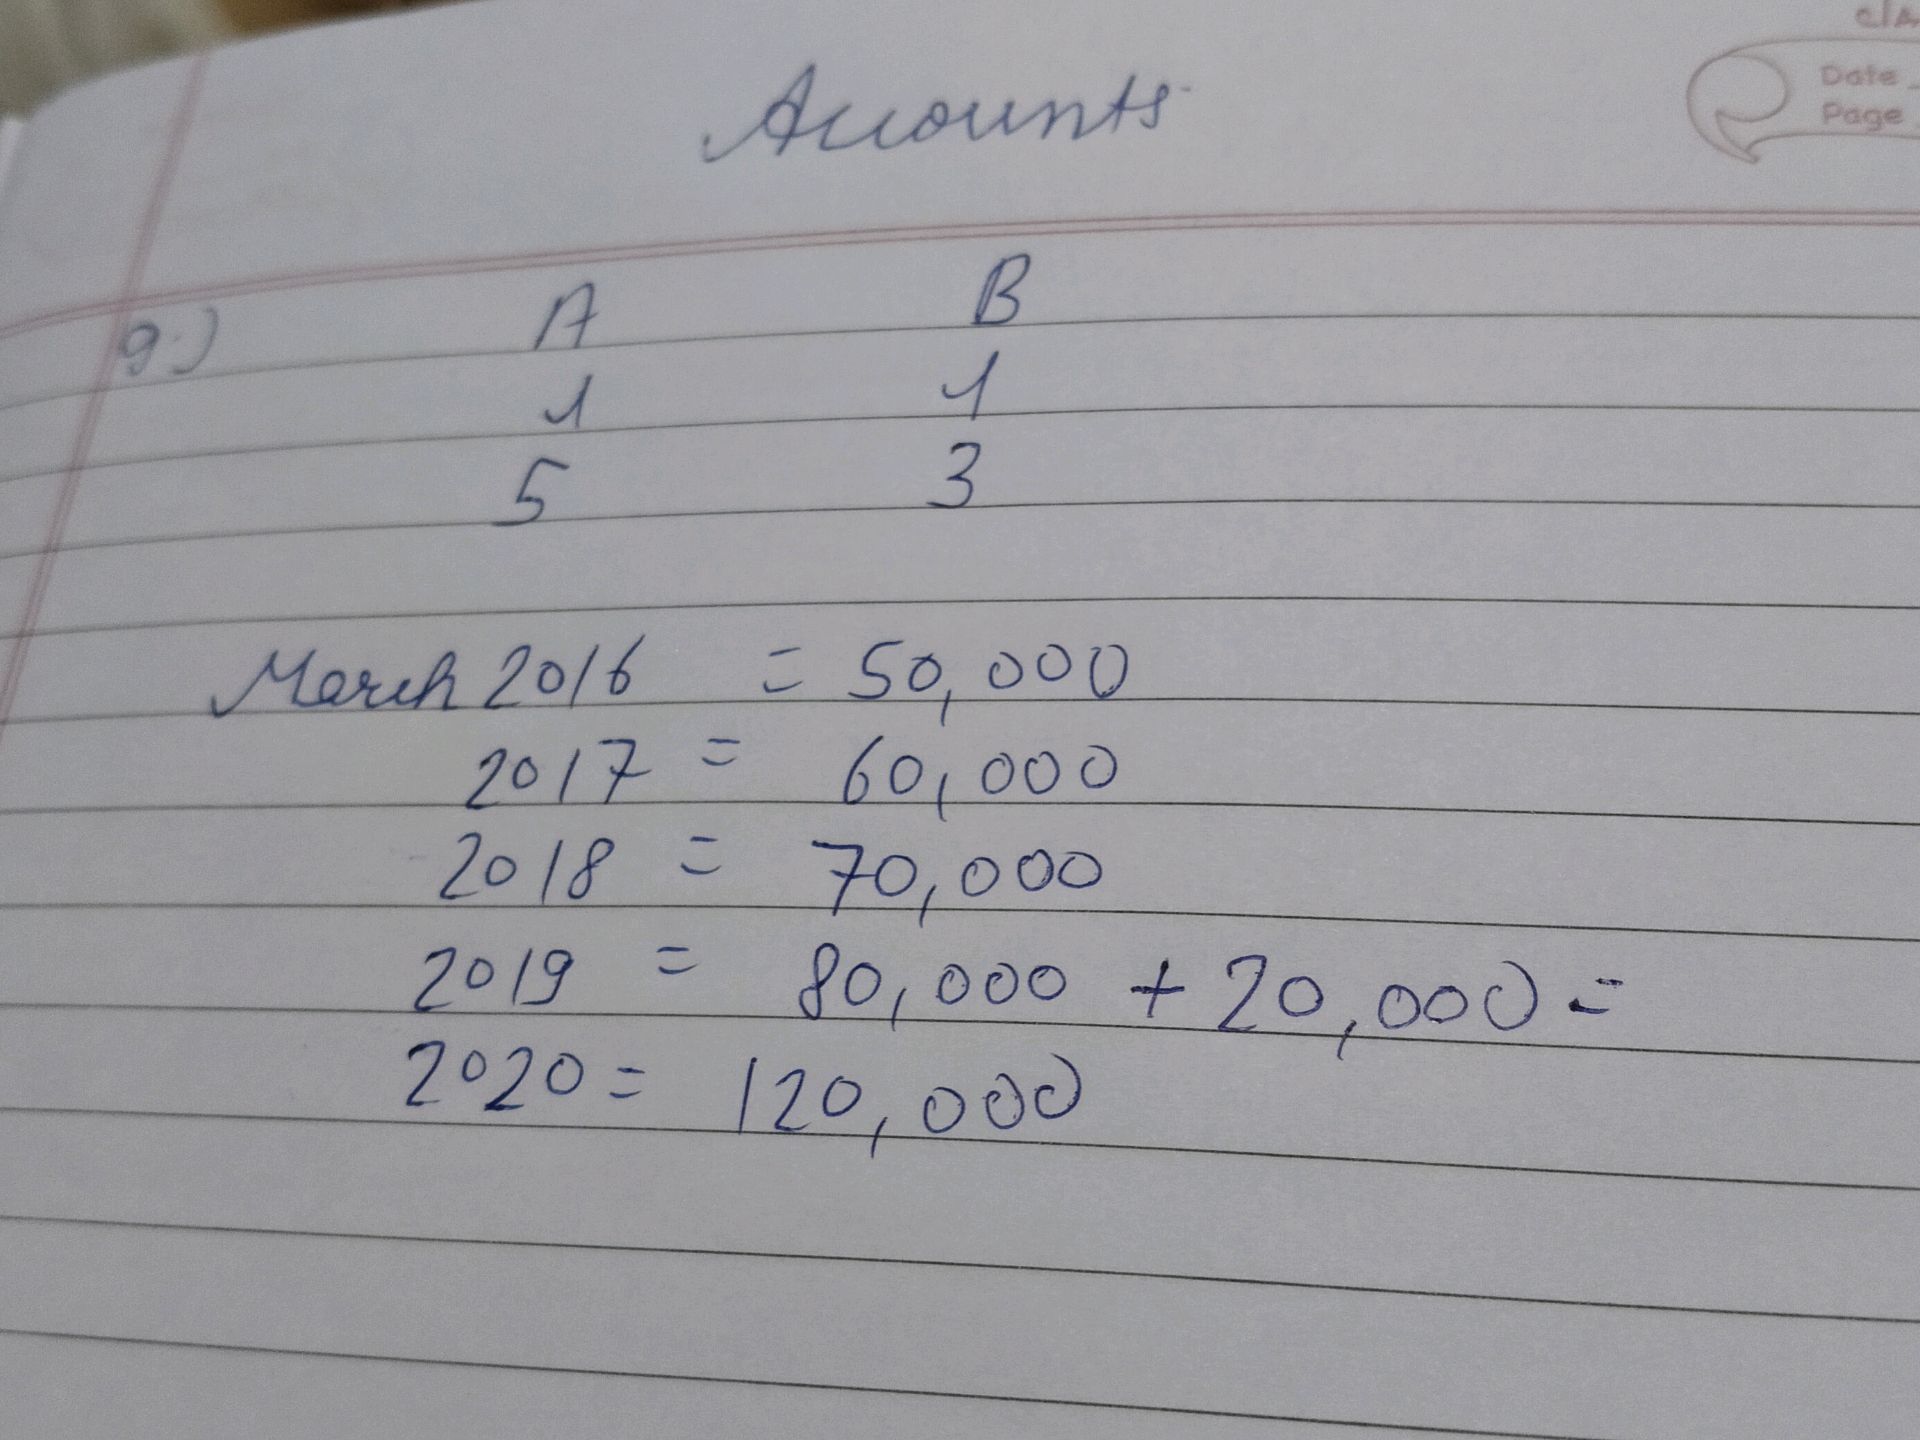 Accounts
Date
Page
9.) A B
1 1
5 3
March 2016 = 50,000
2017 = 60,000
2018 = 70,000
2019 = 80,000 + 20,000 =
2020 = 120,000